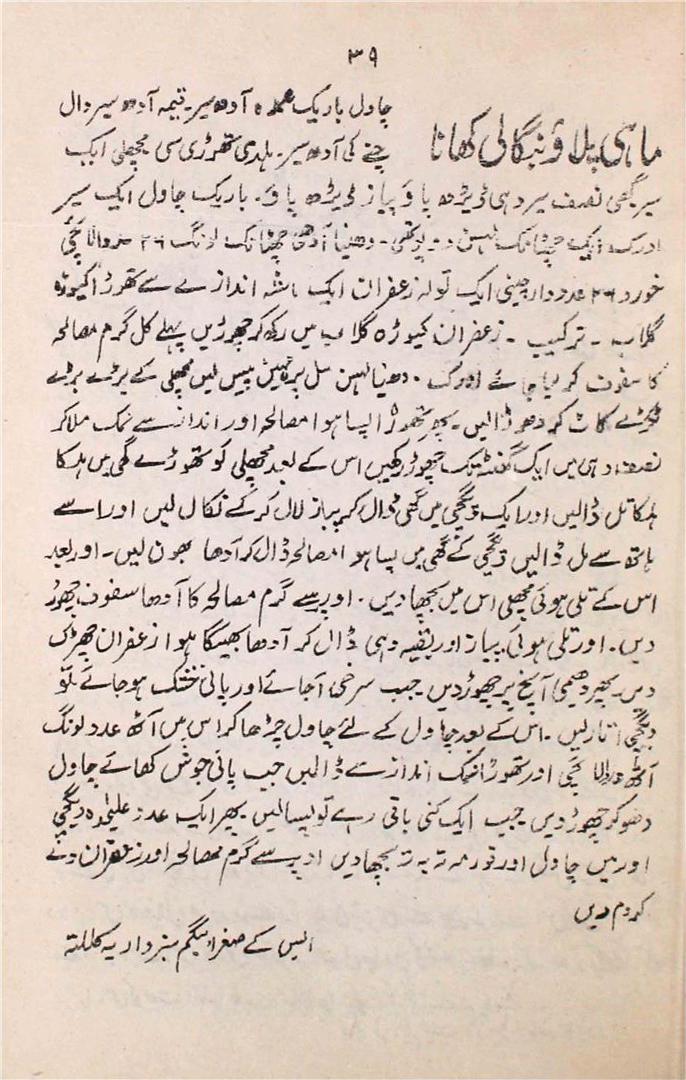 ۳۹
ماہی پلاؤ بنگالی کھانا
چاول باریک عمدہ آدھ سیر۔ قیمہ آدھ سیر دال
چنے کی آدھ سیر۔ ہلدی تھوڑی سی مچھلی ایک
سیر گھی نصف سیر دہی ڈیڑھ پاؤ پیاز ڈیڑھ پاؤ۔ باریک چاول ایک سیر
ادرک ایک چھٹانک لہسن دو پوتھی۔ دھنیا آدھی چھٹانک لونگ ۲۶ عدد الائچی
خورد ۲۶ عدد دارچینی ایک تولہ زعفران ایک ماشہ اندازے سے تھوڑا کیوڑہ
گلاب۔ ترکیب۔ زعفران کیوڑہ گلاب میں رکھ کر چھوڑیں پہلے کل گرم مصالحہ
کا سفوف کر لیا جائے ادرک۔ دھنیا لہسن سل پر مہین پیس لیں مچھلی کے بڑے بڑے
ٹکڑے کاٹ کر دھو ڈالیں۔ پھر تھوڑا پسا ہوا مصالحہ اور انداز سے نمک ملا کر
نصف دہی میں ایک گھنٹہ تک چھوڑ رکھیں اس کے بعد مچھلی کو تھوڑے گھی میں ہلکا
ہلکا تل ڈالیں اور ایک دیگچی میں گھی ڈال کر پیاز لال کر کے نکال لیں اور اسے
ہاتھ سے مل ڈالیں دیگچی کے گھی میں پسا ہوا مصالحہ ڈال کر آدھا بھون لیں۔ اور بعد
اس کے تلی ہوئی مچھلی اس میں بچھا دیں۔ اوپر سے گرم مصالحہ کا آدھا سفوف چھوڑ
دیں۔ اور تلی ہوئی پیاز اور بقیہ دہی ڈال کر آدھا بھیگا ہوا زعفران چھڑک
دیں۔ پھر دھیمی آنچ پر چھوڑ دیں جب سرخی آجائے اور پانی خشک ہو جائے تو
دیگچی اتار لیں۔ اس کے بعد چاول کے لئے چاول چڑھا کر اس میں آٹھ عدد لونگ
آٹھ عدد الائچی اور تھوڑا نمک اندازے ڈالیں جب پانی جوش کھائے چاول
دھو کر چھوڑ دیں جب ایک کنی باقی رہے تو پسالیں پھر ایک عدد علیٰحدہ دیگچی
اور میں چاول اور قورمہ تہ بہ تہ بچھا دیں اوپر سے گرم مصالحہ اور زعفران دے
کر دم دیں
انیس کے صغرا بیگم سبزداریہ کلکتہ